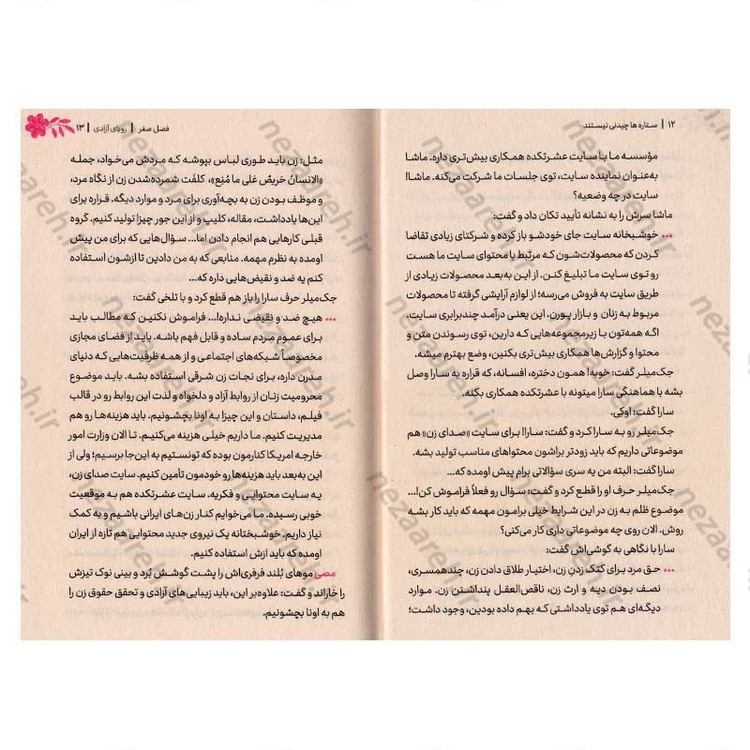 ۱۲ | ستاره ها چیدنی نیستند
مؤسسه ما با سایت عشرتکده همکاری بیش‌تری داره. ماشا
به‌عنوان نماینده سایت، توی جلسات ما شرکت می‌کنه. ماشا!
سایت در چه وضعیه؟
ماشا سرش را به نشانه تأیید تکان داد و گفت:
••• خوشبختانه سایت جای خودشو باز کرده و شرکتای زیادی تقاضا
کردن که محصولات‌شون که مرتبط با محتوای سایت ما هست
رو توی سایت ما تبلیغ کنن. از این به‌بعد محصولات زیادی از
طریق سایت به فروش می‌رسه؛ از لوازم آرایشی گرفته تا محصولات
مربوط به زنان و بازار پورن. این یعنی درآمد چندبرابری سایت.
اگه همه‌تون با زیرمجموعه‌هایی که دارین، توی رسوندن متن و
محتوا و گزارش‌ها همکاری بیش‌تری بکنین، وضع بهترم میشه.
جک‌میلر گفت: خوبه! همون دختره، افسانه، که قراره به سارا وصل
بشه با هماهنگی سارا میتونه با عشرتکده همکاری بکنه.
سارا گفت: اوکی.
جک‌میلر رو به سارا کرد و گفت: سارا! برای سایت «صدای زن» هم
موضوعاتی داریم که باید زودتر براشون محتواهای مناسب تولید بشه.
سارا گفت: البته من یه سری سؤالاتی برام پیش اومده که...
جک‌میلر حرف او را قطع کرد و گفت: سؤال رو فعلاً فراموش کن!...
موضوع ظلم به زن در این شرایط خیلی برامون مهمه که باید کار بشه
روش. الان روی چه موضوعاتی داری کار می‌کنی؟
سارا با نگاهی به گوشی‌اش گفت:
••• حق مرد برای کتک زدنِ زن، اختیار طلاق دادن زن، چندهمسری،
نصف بودن دیه و ارث زن، ناقص‌العقل پنداشتن زن. موارد
دیگه‌ای هم توی یادداشتی که بهم داده بودین، وجود داشت؛
فصل صفر | رویای آزادی | ۱۳
مثل: زن باید طوری لباس بپوشه که مردش می‌خواد، جمله
«الانسانُ حَریصٌ عَلی ما مُنِع»، کلفَت شمرده‌شدن زن از نگاه مرد،
و موظف بودن زن به بچه‌آوری برای مرد و موارد دیگه. قراره برای
این‌ها یادداشت، مقاله، کلیپ و از این جور چیزا تولید کنیم. گروه
قبلی کارهایی هم انجام دادن اما... سؤال‌هایی که برای من پیش
اومده به نظرم مهمه. منابعی که به من دادین تا ازشون استفاده
کنم یه ضد و نقیض‌هایی داره که...
جک‌میلر حرف سارا را باز هم قطع کرد و با تلخی گفت:
••• هیچ ضد و نقیضی نداره!... فراموش نکنین که مطالب باید
برای عموم مردم ساده و قابل فهم باشه. باید از فضای مجازی
مخصوصاً شبکه‌های اجتماعی و از همه ظرفیت‌هایی که دنیای
مدرن داره، برای نجات زن شرقی استفاده بشه. باید موضوع
محرومیت زنان از روابط آزاد و دلخواه و لذت این روابط رو در قالب
فیلم، داستان و این چیزا به اونا بچشونیم. باید هزینه‌ها رو هم
مدیریت کنیم. ما داریم خیلی هزینه می‌کنیم. تا الان وزارت امور
خارجه امریکا کنارمون بوده که تونستیم به این‌جا برسیم؛ ولی از
این به‌بعد باید هزینه‌ها رو خودمون تأمین کنیم. سایت صدای زن،
یه سایت محتوایی و فکریه. سایت عشرتکده هم به موقعیت
خوبی رسیده. ما می‌خوایم کنار زن‌های ایرانی باشیم و به کمک
نیاز داریم. خوشبختانه یک نیروی جدید محتوایی هم تازه از ایران
اومده که باید ازش استفاده کنیم.
مصی موهای بلند فرفری‌اش را پشت گوشش بُرد و بینی نوک تیزش
را خاراند و گفت: علاوه‌بر این، باید زیبایی‌های آزادی و تحقق حقوق زن را
هم به اونا بچشونیم.
nezaareh.ir